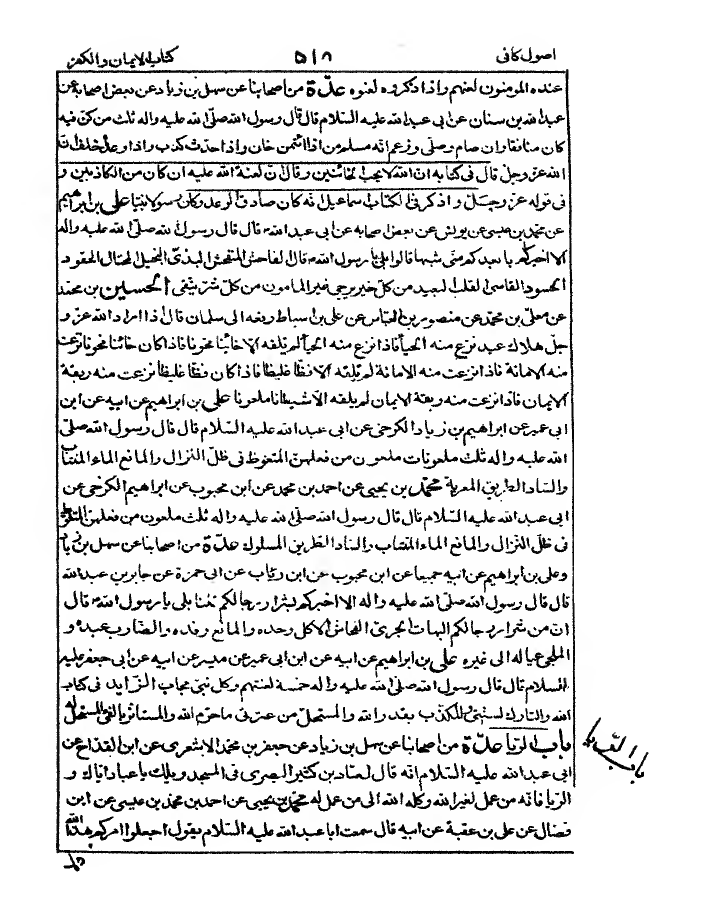 اصول كافى ٥١٨ كتاب الايمان والكفر
عنده المؤمنون لعنهم واذا ذكروه لعنوه عدّة من اصحابنا عن سهل بن زياد عن بعض اصحابه عن
عبدالله بن سنان عن ابى عبدالله عليه السلام قال قال رسول الله صلّى الله عليه واله ثلث من كنّ فيه
كان منافقا وان صام وصلّى وزعم انّه مسلم من اذا ائتمن خان واذا حدّث كذب واذا وعد اخلف انّ
الله عزّ وجلّ قال فى كتابه انّ الله لا يحبّ الخائنين وقال انّ لعنة الله عليه ان كان من الكاذبين و
فى قوله عزّ وجلّ واذكر فى الكتاب اسماعيل انّه كان صادق الوعد وكان رسولا نبيّا على بن ابراهيم
عن محمد بن عيسى عن يونس عن بعض اصحابه عن ابى عبدالله قال قال رسول الله صلى الله عليه واله
الا اخبركم بابعدكم منّى شبها قالوا بلى يا رسول الله قال الفاحش المتفحّش البذىّ البخيل المختال الحقود
الحسود القاسى القلب البعيد من كلّ خير يرجى غير المامون من كلّ شرّ يتّقى الحسين بن محمد
عن معلّى بن محمد عن منصور بن العبّاس عن على بن اسباط رفعه الى سلمان قال اذا اراد الله عزّ و
جلّ هلاك عبد نزع منه الحياء فاذا نزع منه الحياء لم يلقه الا خائنا مخونا فاذا كان خائنا مخونا نزعت
منه الامانة فاذا نزعت منه الامانة لم يلقه الا فظّا غليظا فاذا كان فظّا غليظا نزعت منه ربقة
الايمان فاذا نزعت منه ربقة الايمان لم يلقه الّا شيطانا ملعونا على بن ابراهيم عن ابيه عن ابن
ابى عمير عن ابراهيم بن زياد الكرخى عن ابى عبد الله عليه السلام قال قال رسول الله صلّى
الله عليه واله ثلث ملعونات ملعون من فعلهنّ المتغوّط فى ظلّ النزال والمانع الماء المنتاب
والسادّ الطريق المعربة محمّد بن يحيى عن احمد بن محمد عن ابن محبوب عن ابراهيم الكرخى عن
ابى عبد الله عليه السلام قال قال رسول الله صلى الله عليه واله ثلث ملعون من فعلهنّ المتغوّط
فى ظلّ النزال والمانع الماء المنتاب والسادّ الطريق المسلوك عدّة من اصحابنا عن سهل بن زياد
وعلى بن ابراهيم عن ابيه جميعا عن ابن محبوب عن ابن رئاب عن ابى حمزة عن جابر بن عبدالله
قال قال رسول الله صلّى الله عليه واله الا اخبركم بشرار رجالكم قلنا بلى يا رسول الله قال
انّ من شرار رجالكم البهّات الجرىّ الفحّاش الآكل وحده والمانع رفده والضارب عبده و
الملجئ عياله الى غيره على بن ابراهيم عن ابيه عن ابن ابى عمير عن ميسر عن ابيه عن ابى جعفر عليه
السلام قال قال رسول الله صلى الله عليه واله خمسة لعنتهم وكل نبىّ مجاب الزّايد فى كتاب
الله والتارك لسنّتى والمكذّب بقدر الله والمستحلّ من عترتى ما حرّم الله والمستاثر بالفئ المستحلّ له
باب الريا عدّة من اصحابنا عن سهل بن زياد عن جعفر بن محمد الاشعرى عن ابن القدّاح عن
ابى عبد الله عليه السلام انّه قال لعبّاد بن كثير البصرى فى المسجد ويلك يا عبّاد ايّاك و
الريا فانّه من عمل لغير الله وكله الله الى من عمل له محمّد بن يحيى عن احمد بن محمد بن عيسى عن ابن
فضّال عن على بن عقبة عن ابيه قال سمعت ابا عبد الله عليه السلام يقول اجعلوا امركم هذا لله
باب الريا